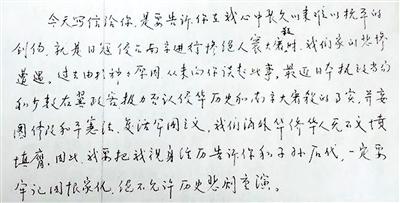 今天写信给你,是要告诉你在我心中长久以来难以抚平的
创伤,就是日冠侵占南京进行惨绝人寰大屠杀时,我们家的悲惨
遭遇。过去由于种种原因从未向你谈起此事。最近日本执政当局
和少数右翼政客极力否认侵华历史和南京大屠杀的事实,并妄
图修改和平宪法、复活军国主义,我们海外华侨华人无不义愤
填膺。因此,我要把我亲身经历告诉你和子孙后代,一定要
牢记国恨家仇,绝不允许历史悲剧重演。